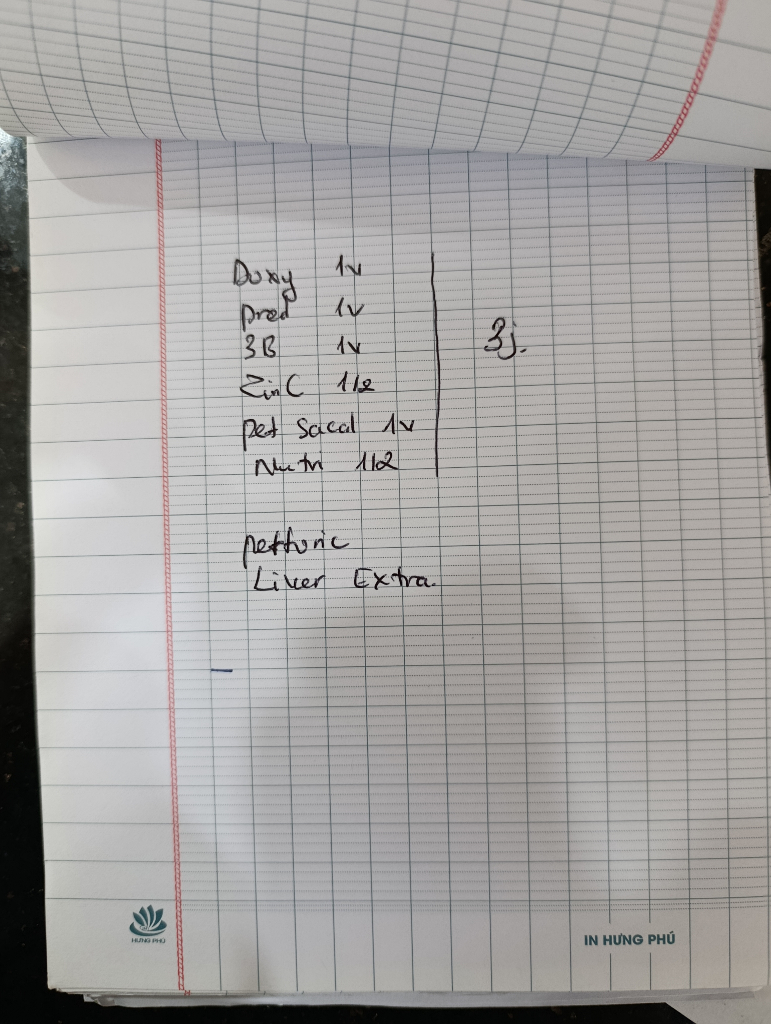 Doxy 1v
pred 1v
3B 1v
ZinC 1/2
pet Sacal 1v
Nutri 1/2
3j.
pettonic
Liver Extra.
HƯNG PHÚ
IN HƯNG PHÚ